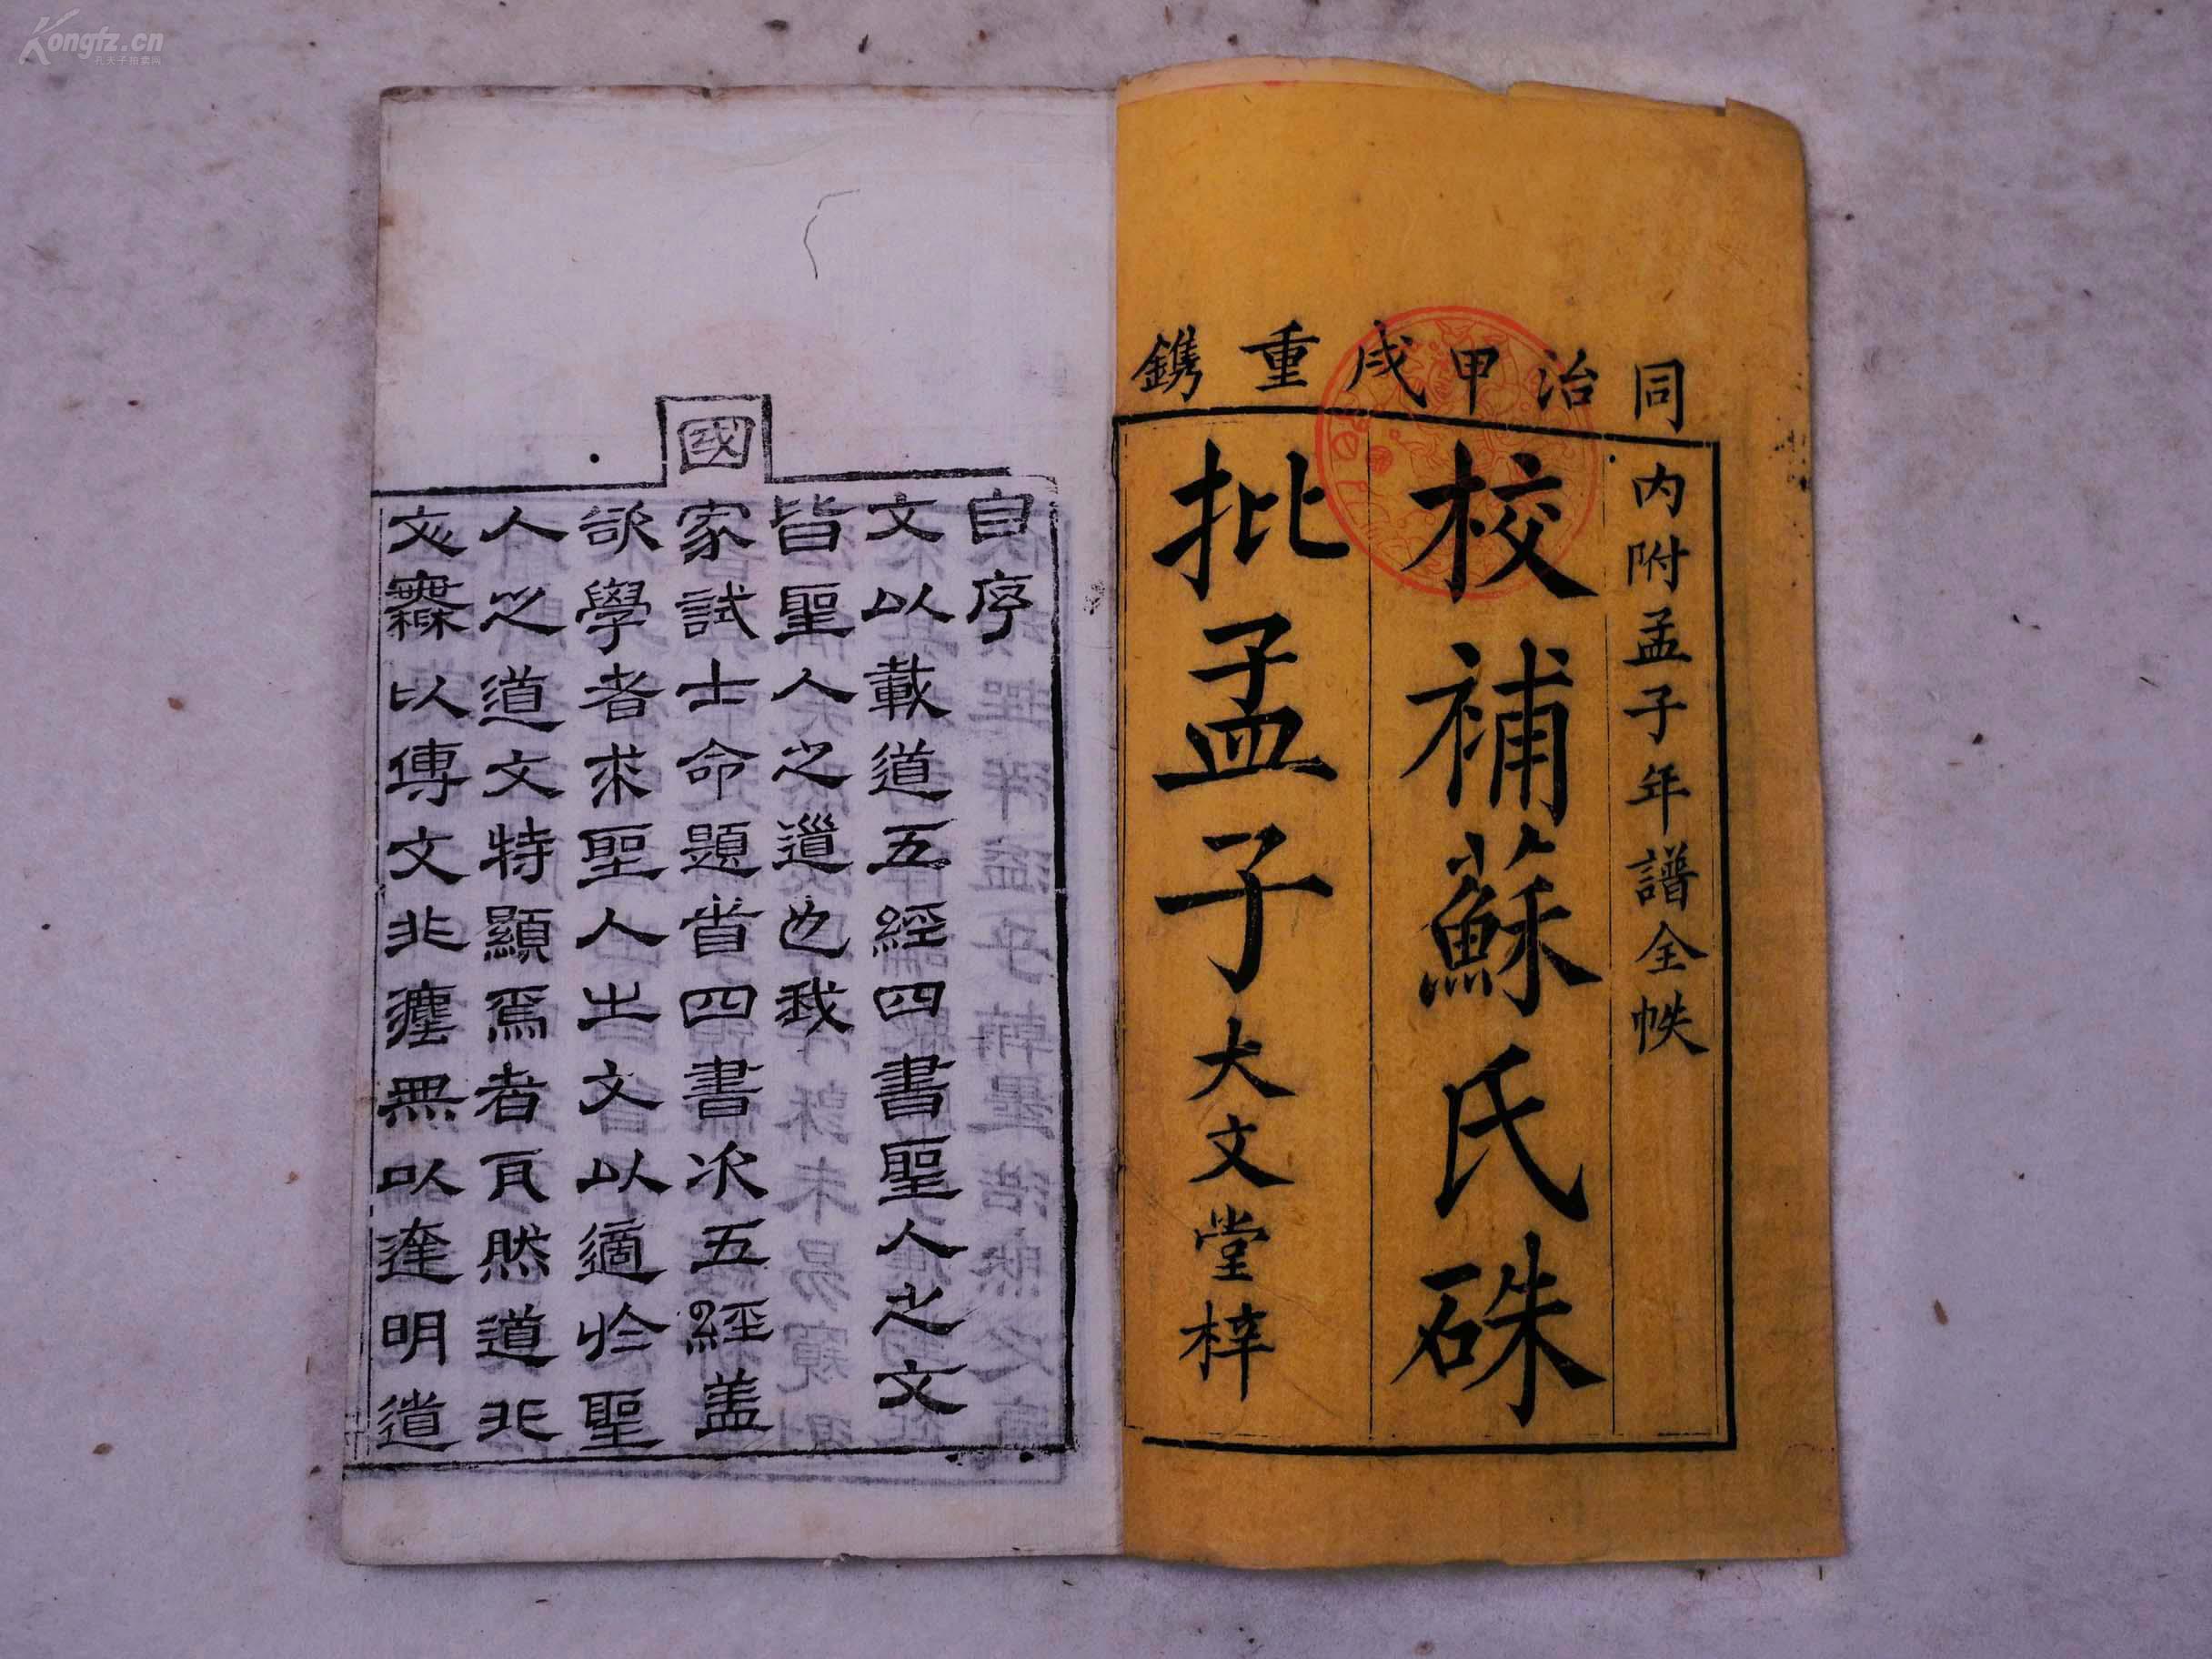 Kongfz.cn
孔夫子拍卖网
同治甲戌重鐫
內附孟子年譜全帙
校補蘇氏硃
批孟子大文堂梓
自序
文以載道五經四書聖人之文
皆聖人之道也我
國
家試士命題首四書次五經盖
欲學者求聖人之文以適於聖
人之道文特顯焉者耳然道非
文無以傳文非
無以達明道